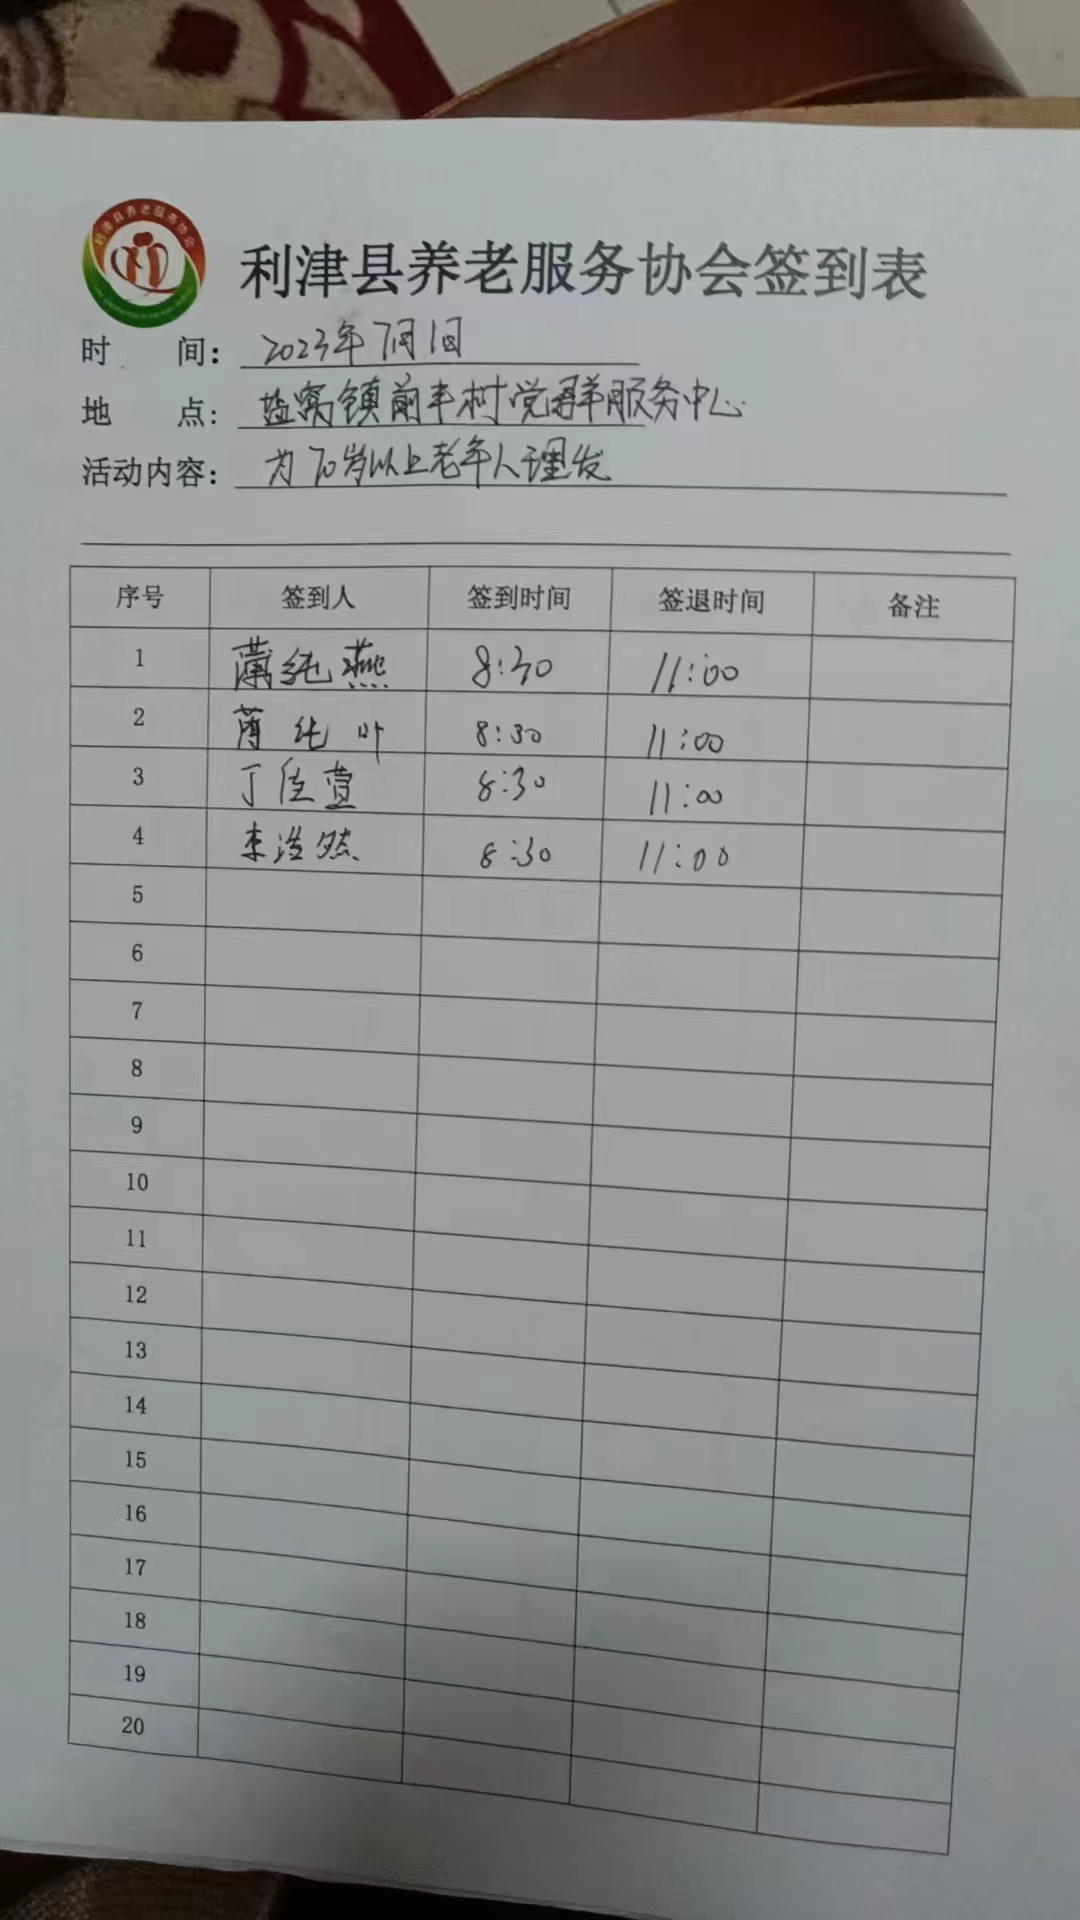 利津县养老服务协会
利津县养老服务协会签到表
时 间: 2023年7月1日
地 点: 盐窝镇前丰村党群服务中心
活动内容: 为70岁以上老年人理发
序号 签到人 签到时间 签退时间 备注
1 薄纯燕 8:30 11:00
2 薄纯叶 8:30 11:00
3 丁佳萱 8:30 11:00
4 李浩然 8:30 11:00
5
6
7
8
9
10
11
12
13
14
15
16
17
18
19
20